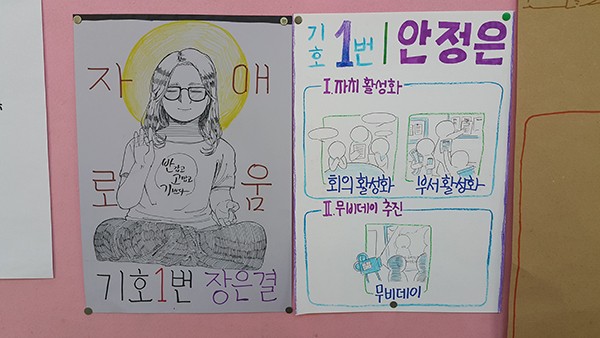 자 애
로 움
반갑고
고맙고
기쁘다
기호1번 장은결
기호 1번 안정은
I. 자치 활성화
회의 활성화
부서 활성화
II. 무비데이 추진
무비데이